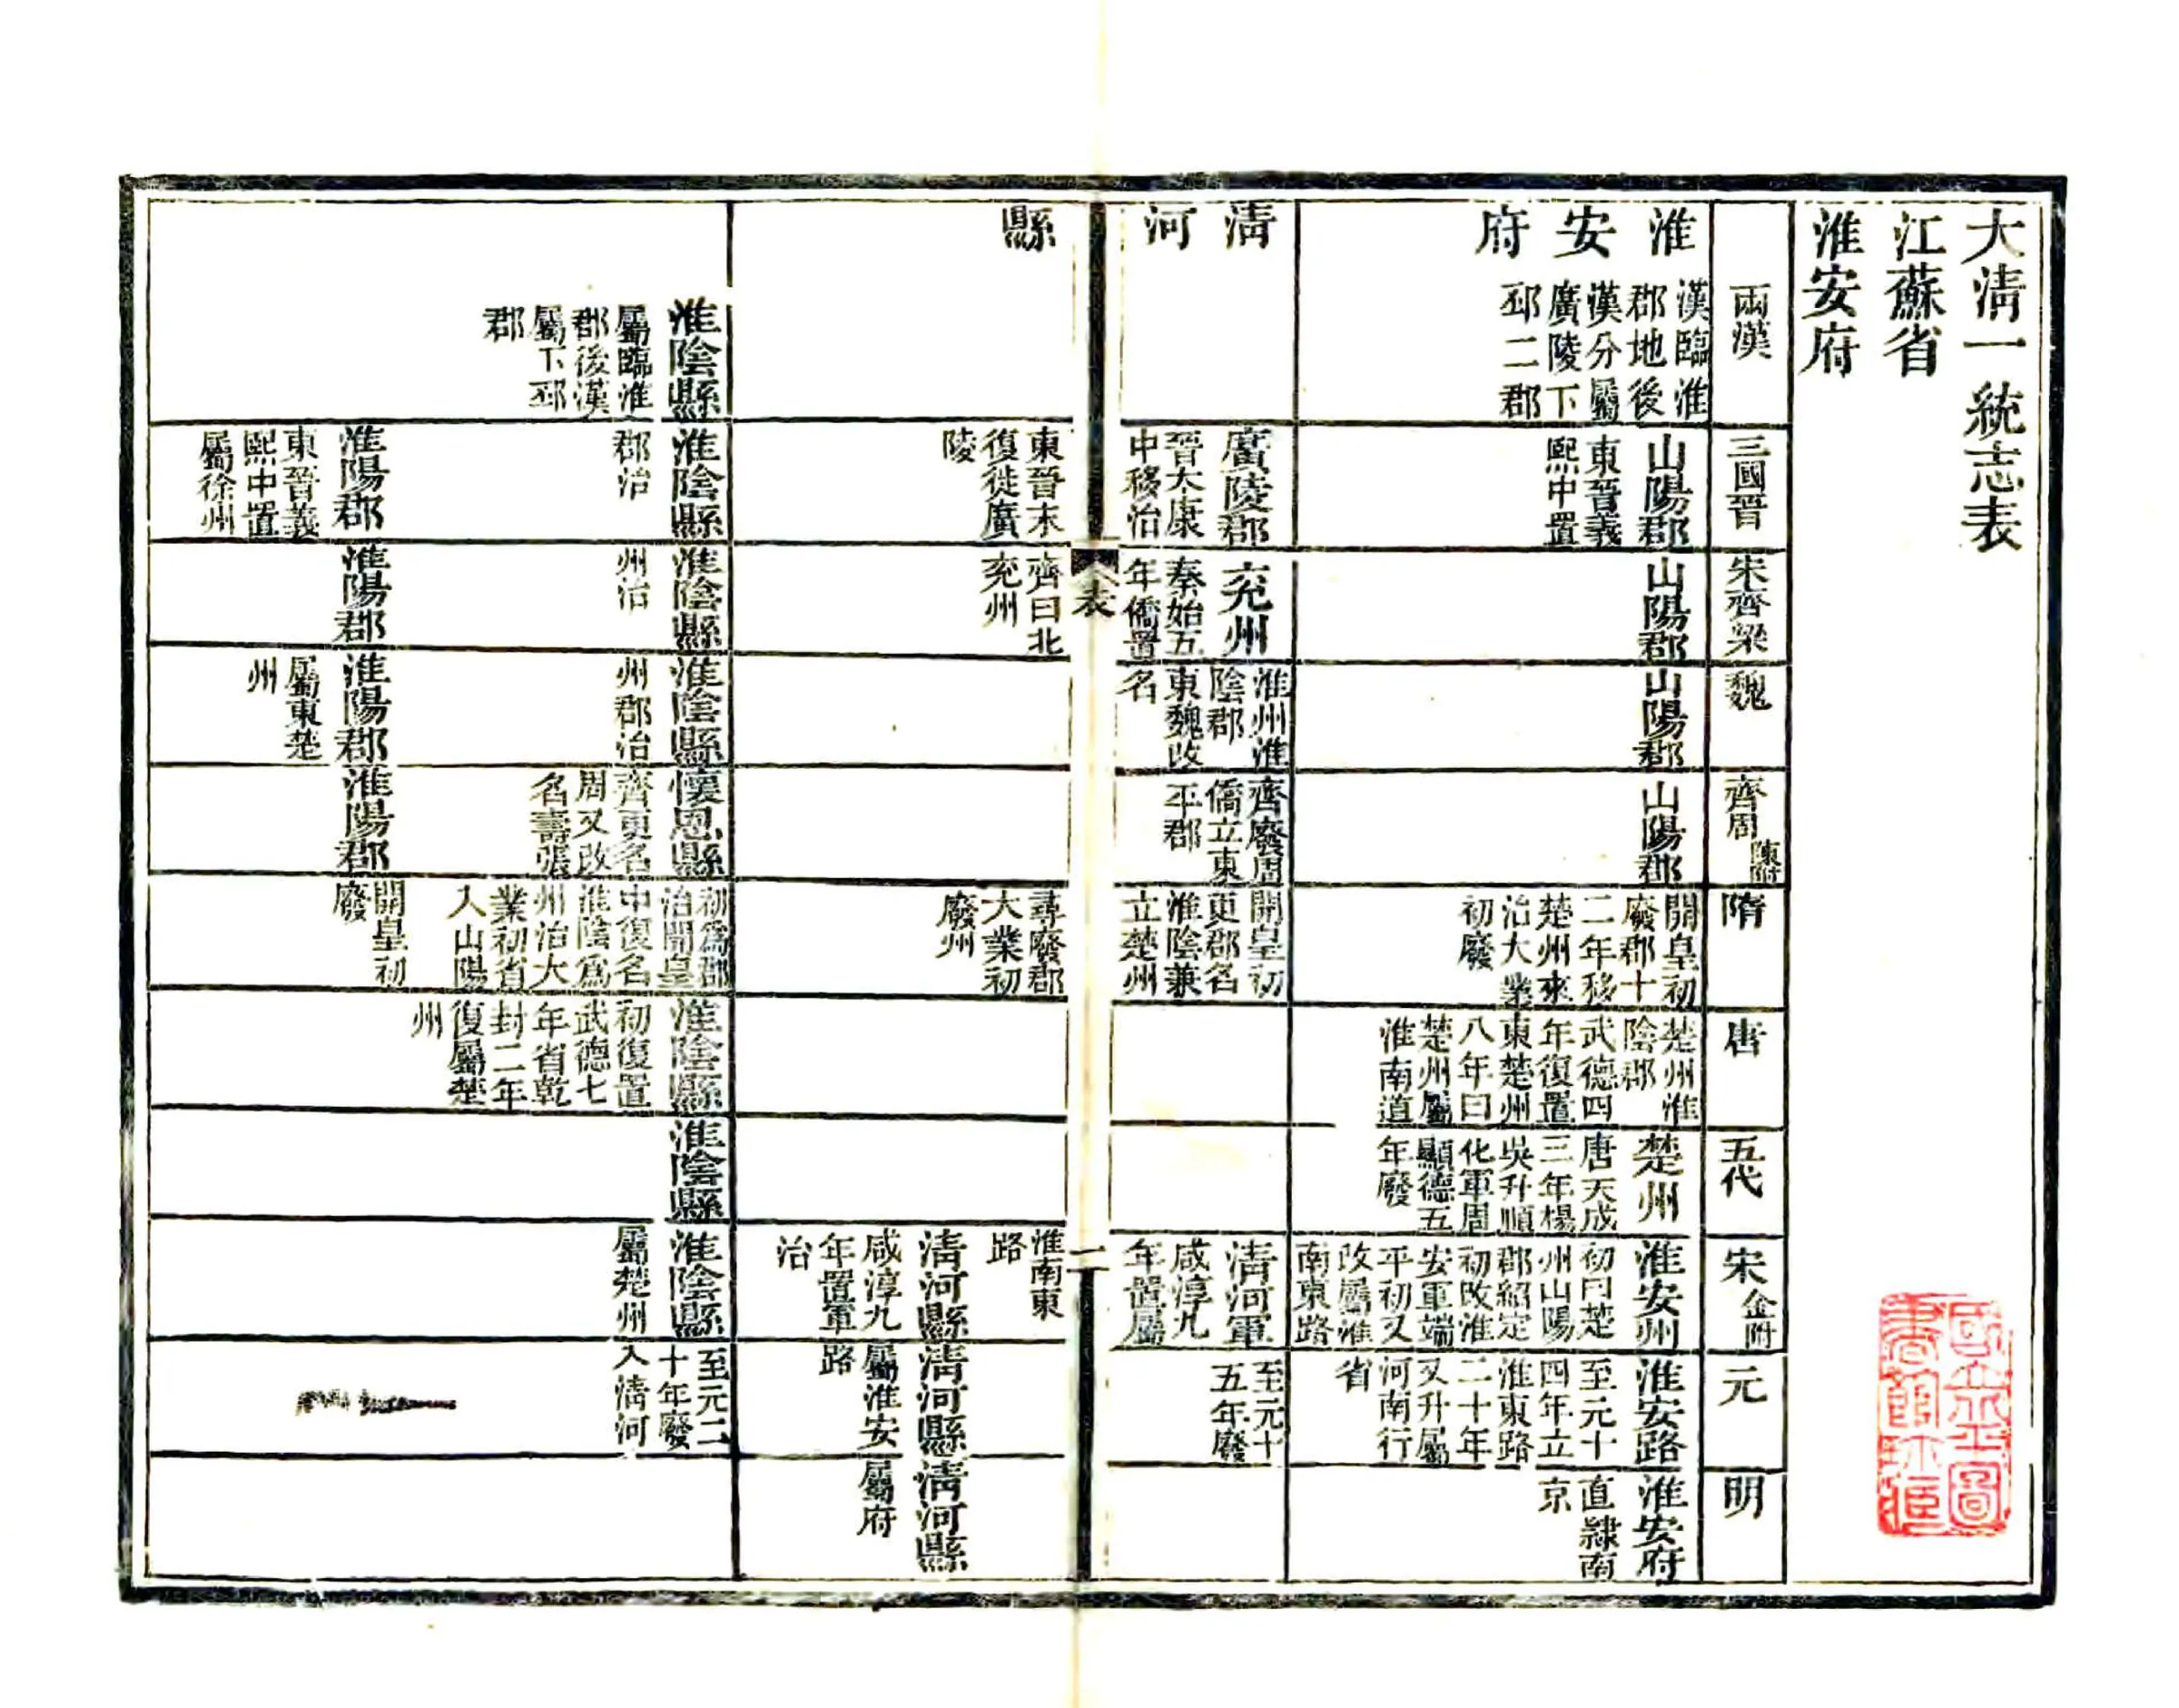 大清一統志表
江蘇省
淮安府
兩漢
三國晉
宋齊梁
魏
齊周陳附
隋
唐
五代
宋金附
元
明
淮安府
漢臨淮
郡地後
漢分屬
廣陵下
邳二郡
山陽郡
東晉義
熙中置
山陽郡
山陽郡
山陽郡
開皇初
廢郡十
二年移
楚州來
治大業
初廢
楚州淮
陰郡
武德四
年復置
東楚州
八年曰
楚州屬
淮南道
楚州
唐天成
三年楊
吳升順
化軍周
顯德五
年廢
淮安州
初曰楚
州山陽
郡紹定
初改淮
安軍端
平初又
改屬淮
南東路
淮安路
至元十
四年立
淮東路
二十年
又升屬
河南行
省
淮安府
直隸南
京
清河縣
廣陵郡
晉太康
中移治
兖州
泰始五
年僑置
淮州淮
陰郡
東魏改
名
齊廢周
僑立東
平郡
開皇初
更郡名
淮陰兼
立楚州
清河軍
咸淳九
年置屬
至元十
五年廢
表
一
東晉末
復徙廣
陵
齊曰北
兖州
尋廢郡
大業初
廢州
淮南東
路
清河縣
咸淳九
年置軍
治
清河縣
屬淮安
路
清河縣
屬府
淮陰縣
屬臨淮
郡後漢
屬下邳
郡
淮陰縣
郡治
淮陰縣
州治
淮陰縣
州郡治
懷恩縣
齊更名
周又改
名壽張
初爲郡
治開皇
中復名
淮陰爲
州治大
業初省
入山陽
淮陰縣
初復置
武德七
年省乾
封二年
復屬楚
州
淮陰縣
淮陰縣
屬楚州
至元二
十年廢
入清河
淮陽郡
東晉義
熙中置
屬徐州
淮陽郡
淮陽郡
屬東楚
州
淮陽郡
開皇初
廢
國立北平圖
書館珍藏